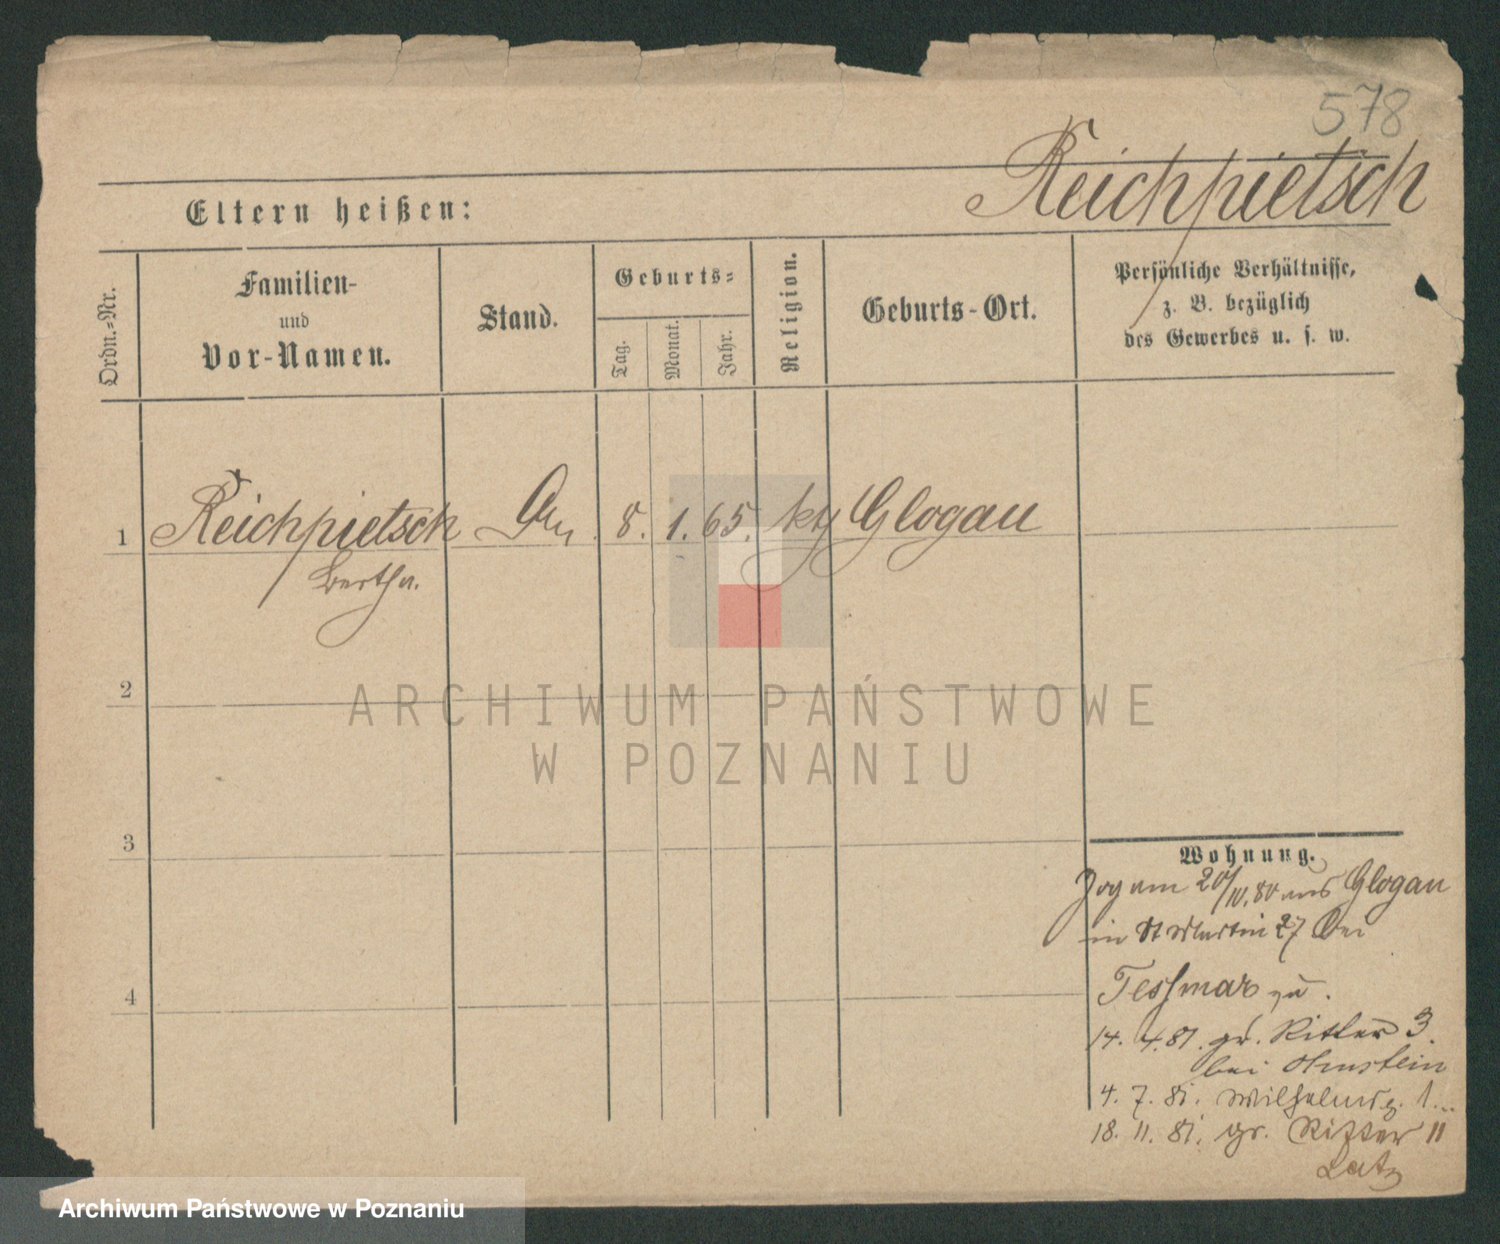 578
Reichpietsch
Eltern heißen:
Ordn.-Nr.
Familien-
und
Vor-Namen.
Stand.
Geburts-
Tag.
Monat.
Jahr.
Religion.
Geburts-Ort.
Persönliche Verhältnisse,
z. B. bezüglich
des Gewerbes u. s. w.
1 Reichpietsch 8. 1. 65. Glogau
Bertha.
2
3
4
ARCHIWUM PAŃSTWOWE
W POZNANIU
Wohnung.
Zog am 20/10.80 aus Glogau
in St Martin 27 bei
Tessmar zu.
14. 4.81. gr. Ritter 3.
bei
4. 7. 81. 1
18. 11. 81. gr. Ritter 11
Archiwum Państwowe w Poznaniu